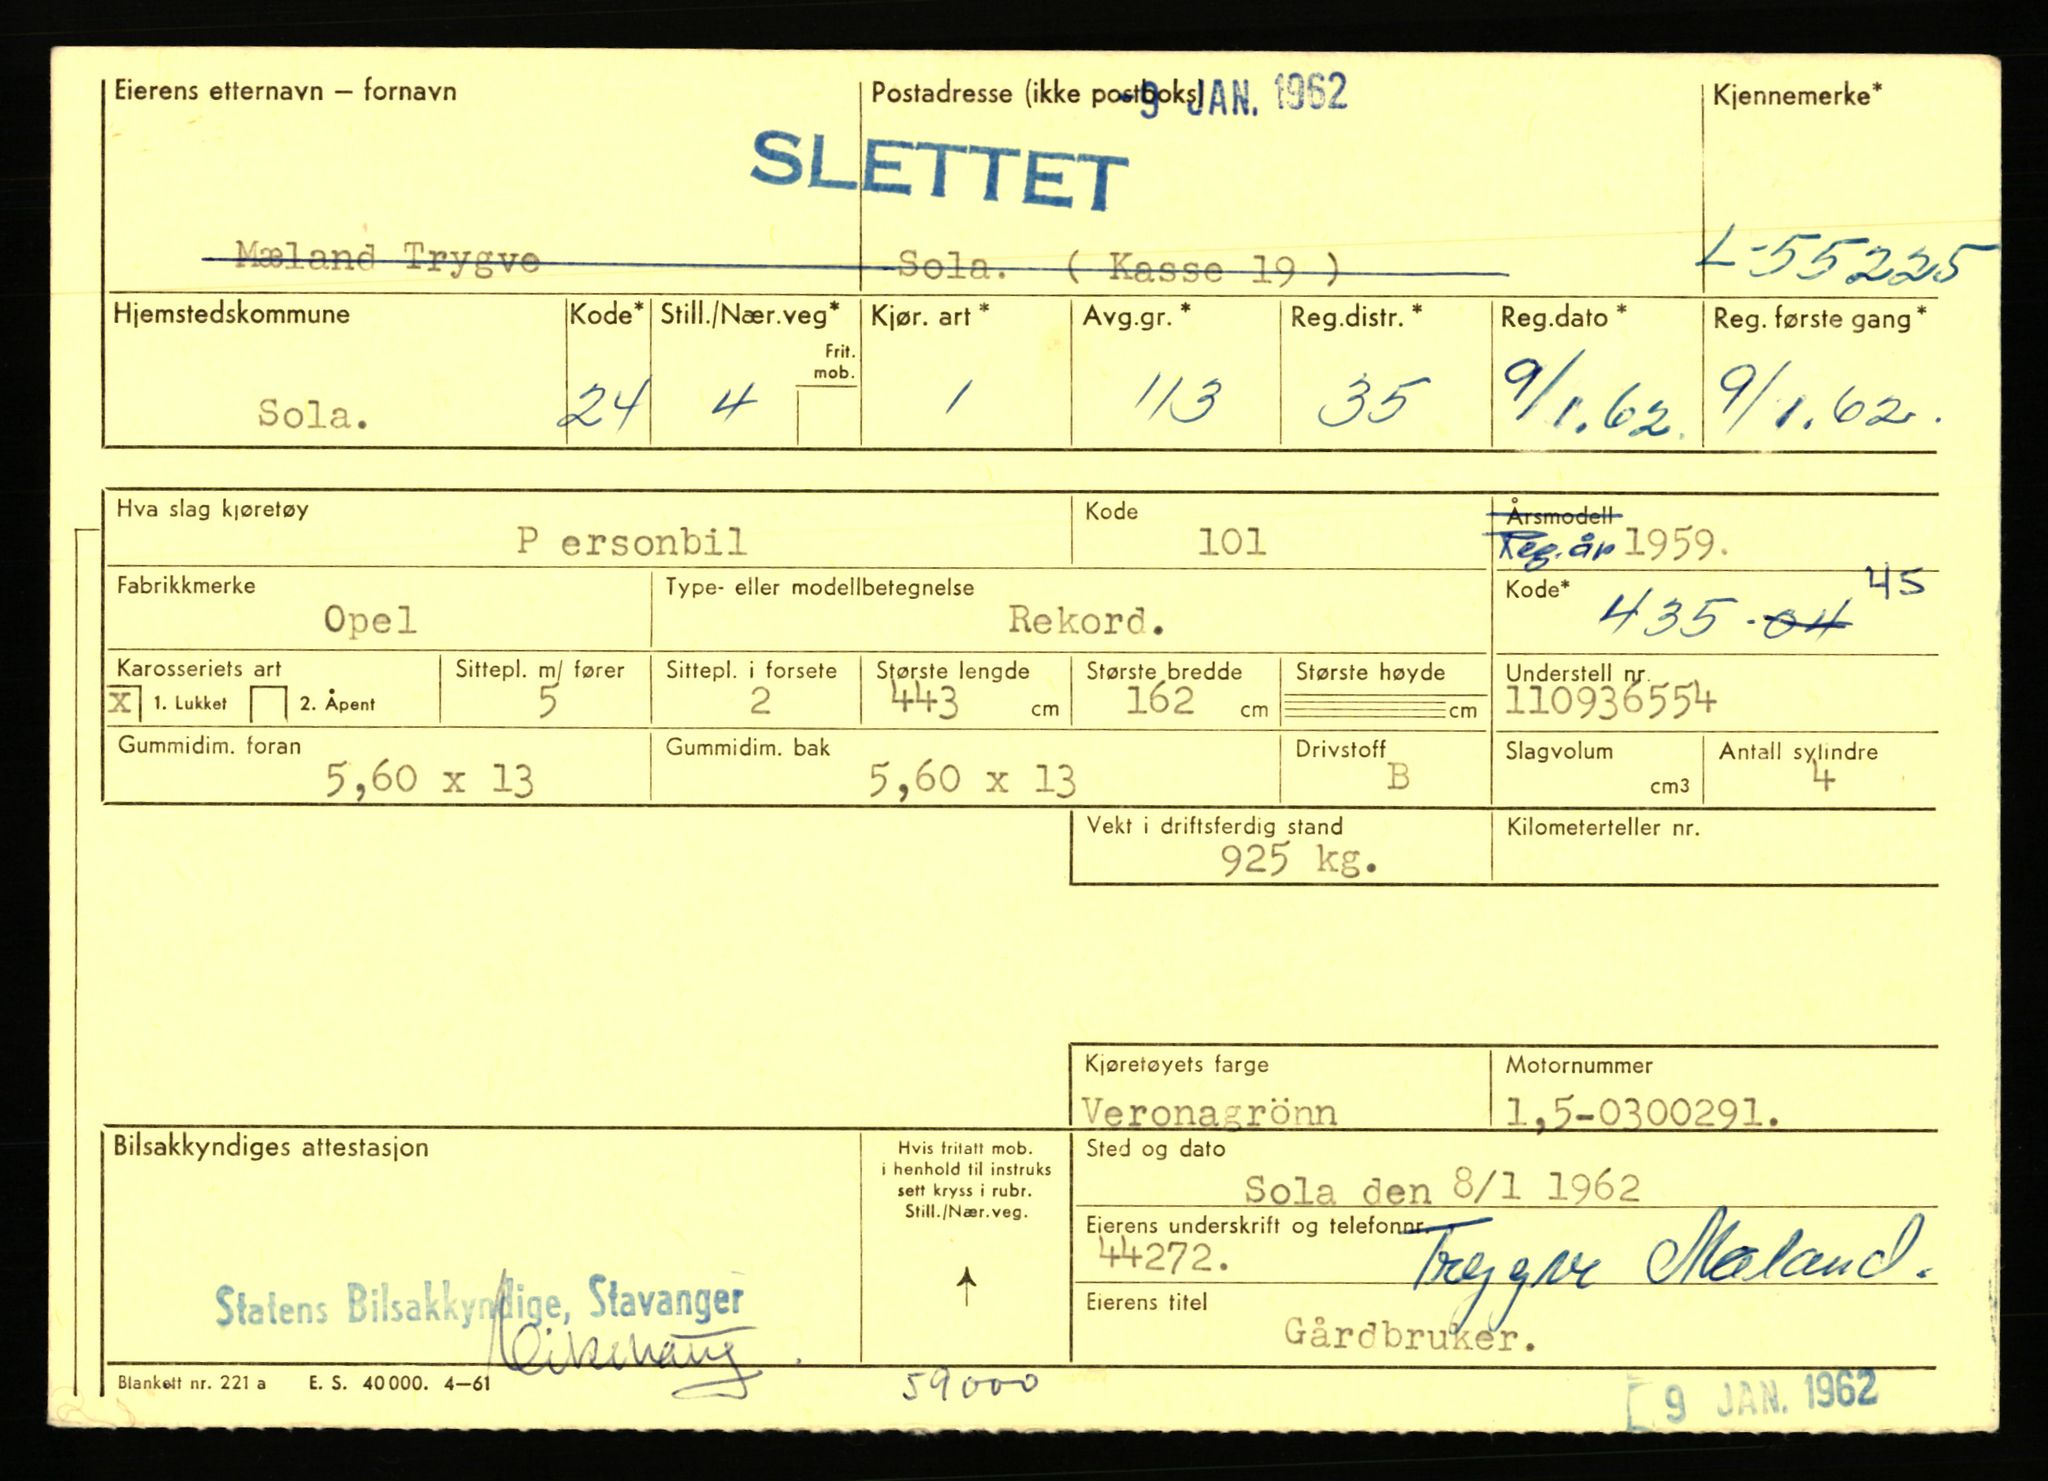 Eierens etternavn – fornavn
Postadresse (ikke postboks)
-9 JAN. 1962
Kjennemerke*
SLETTET
Mæland Trygve
Sola. ( Kasse 19 )
L-55225
Hjemstedskommune
Kode*
Still./Nær.veg*
Kjør. art*
Avg.gr.*
Reg.distr.*
Reg.dato*
Reg. første gang*
Frit.
mob.
Sola.
24
4
1
113
35
9/1.62.
9/1.62.
Hva slag kjøretøy
Personbil
Kode
101
Årsmodell
Reg.år 1959.
Fabrikkmerke
Opel
Type- eller modellbetegnelse
Rekord.
Kode*
435-04 45
Karosseriets art
X 1. Lukket
2. Åpent
Sittepl. m/ fører
5
Sittepl. i forsete
2
Største lengde
443 cm
Største bredde
162 cm
Største høyde
cm
Understell nr.
110936554
Gummidim. foran
5,60 x 13
Gummidim. bak
5,60 x 13
Drivstoff
B
Slagvolum
cm3
Antall sylindre
4
Vekt i driftsferdig stand
925 kg.
Kilometerteller nr.
Kjøretøyets farge
Veronagrönn
Motornummer
1,5-0300291.
Bilsakkyndiges attestasjon
Hvis fritatt mob.
i henhold til instruks
sett kryss i rubr.
Still./Nær.veg.
Sted og dato
Sola den 8/1 1962
Eierens underskrift og telefonnr.
44272.
Trygve Mæland.
Statens Bilsakkyndige, Stavanger
Eierens titel
Gårdbruker.
Blankett nr. 221 a E. S. 40 000. 4–61
59000
9 JAN. 1962